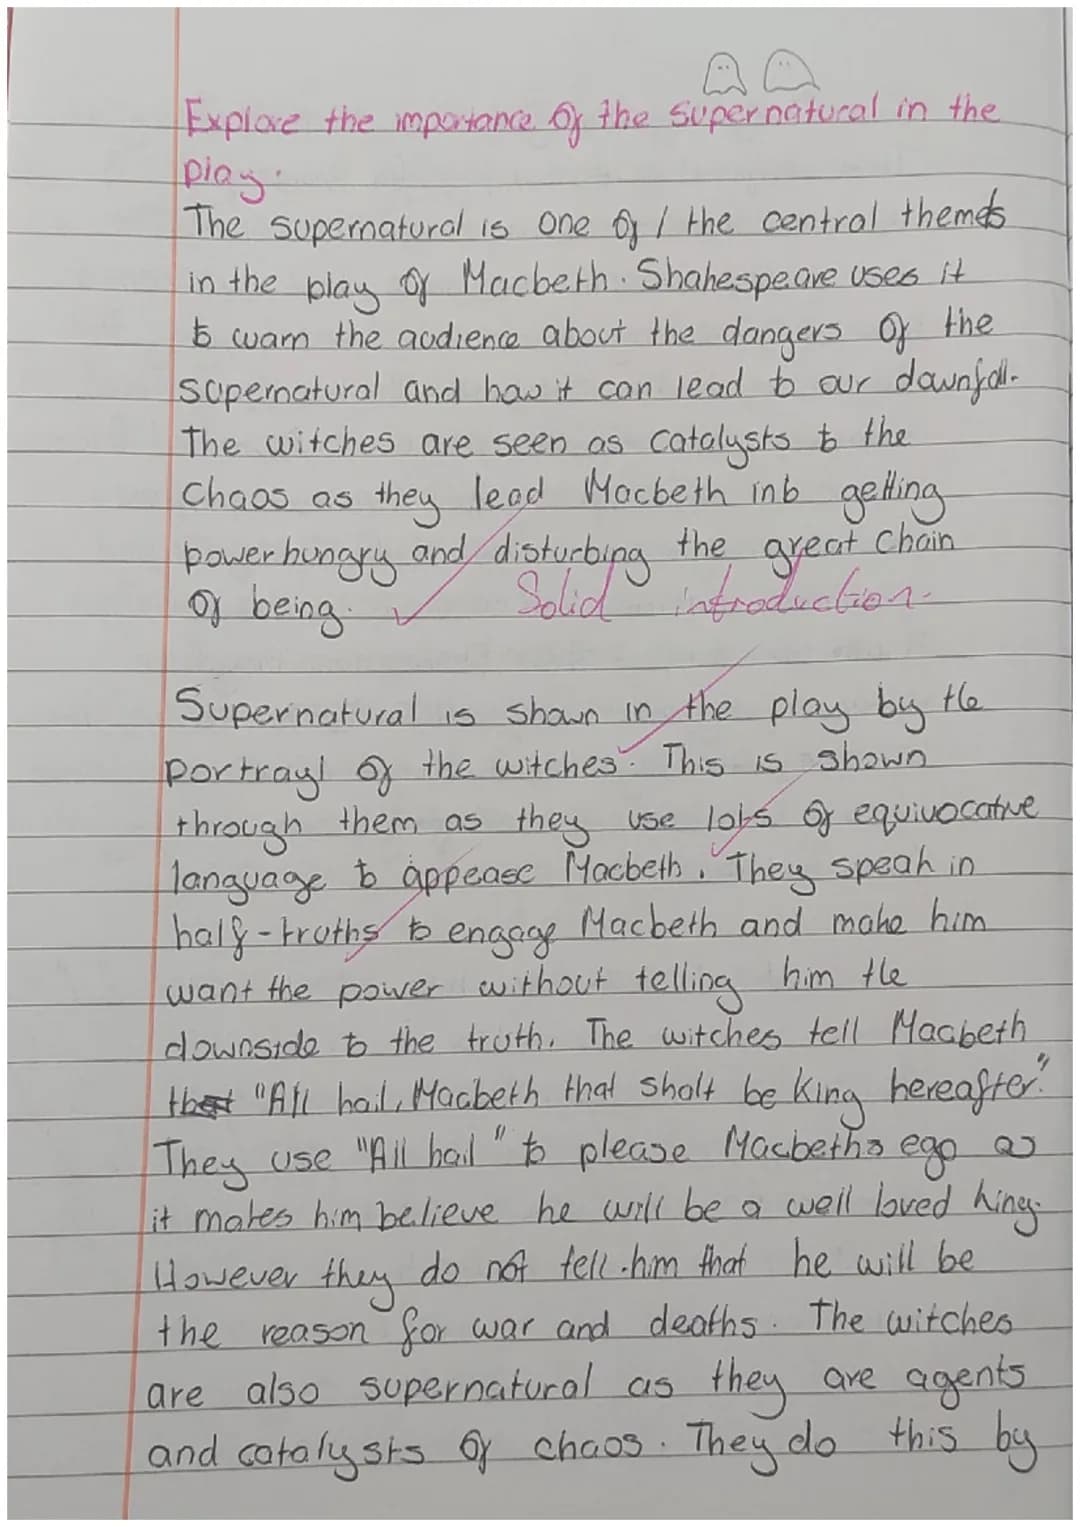 Explore the importance of the supernatural in the
play.
The supernatural is one of / the central themes
in the play of Macbeth. Shakespeare uses it
to warn the audience about the dangers of the
supernatural and how it can lead to our downfall.
The witches are seen as catalysts to the
chaos as they lead Macbeth into getting
power hungry and disturbing the great chain
of being.
Solid introduction.
Supernatural is shown in the play by the
portrayl of the witches. This is shown
through them as they use lots of equivocative
language to appease Macbeth. They speak in
half-truths to engage Macbeth and make him
want the power without telling him the
downside to the truth. The witches tell Macbeth
that "All hail, Macbeth that shalt be king hereafter."
They use "All hail" to please Macbeths ego as
it makes him believe he will be a well loved king.
However they do not tell him that he will be
the reason for war and deaths. The witches
are also supernatural as they are agents
and catalysts of chaos. They do this by